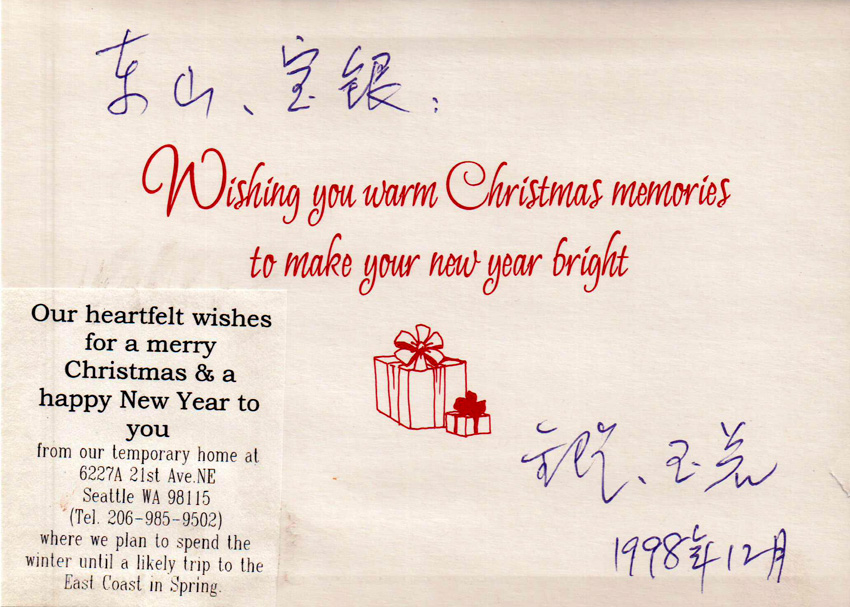 东山、宝银:
Wishing you warm Christmas memories
to make your new year bright
Our heartfelt wishes
for a merry
Christmas & a
happy New Year to
you
from our temporary home at
6227A 21st Ave.NE
Seattle WA 98115
(Tel. 206-985-9502)
where we plan to spend the
winter until a likely trip to the
East Coast in Spring.
、玉
1998年12月